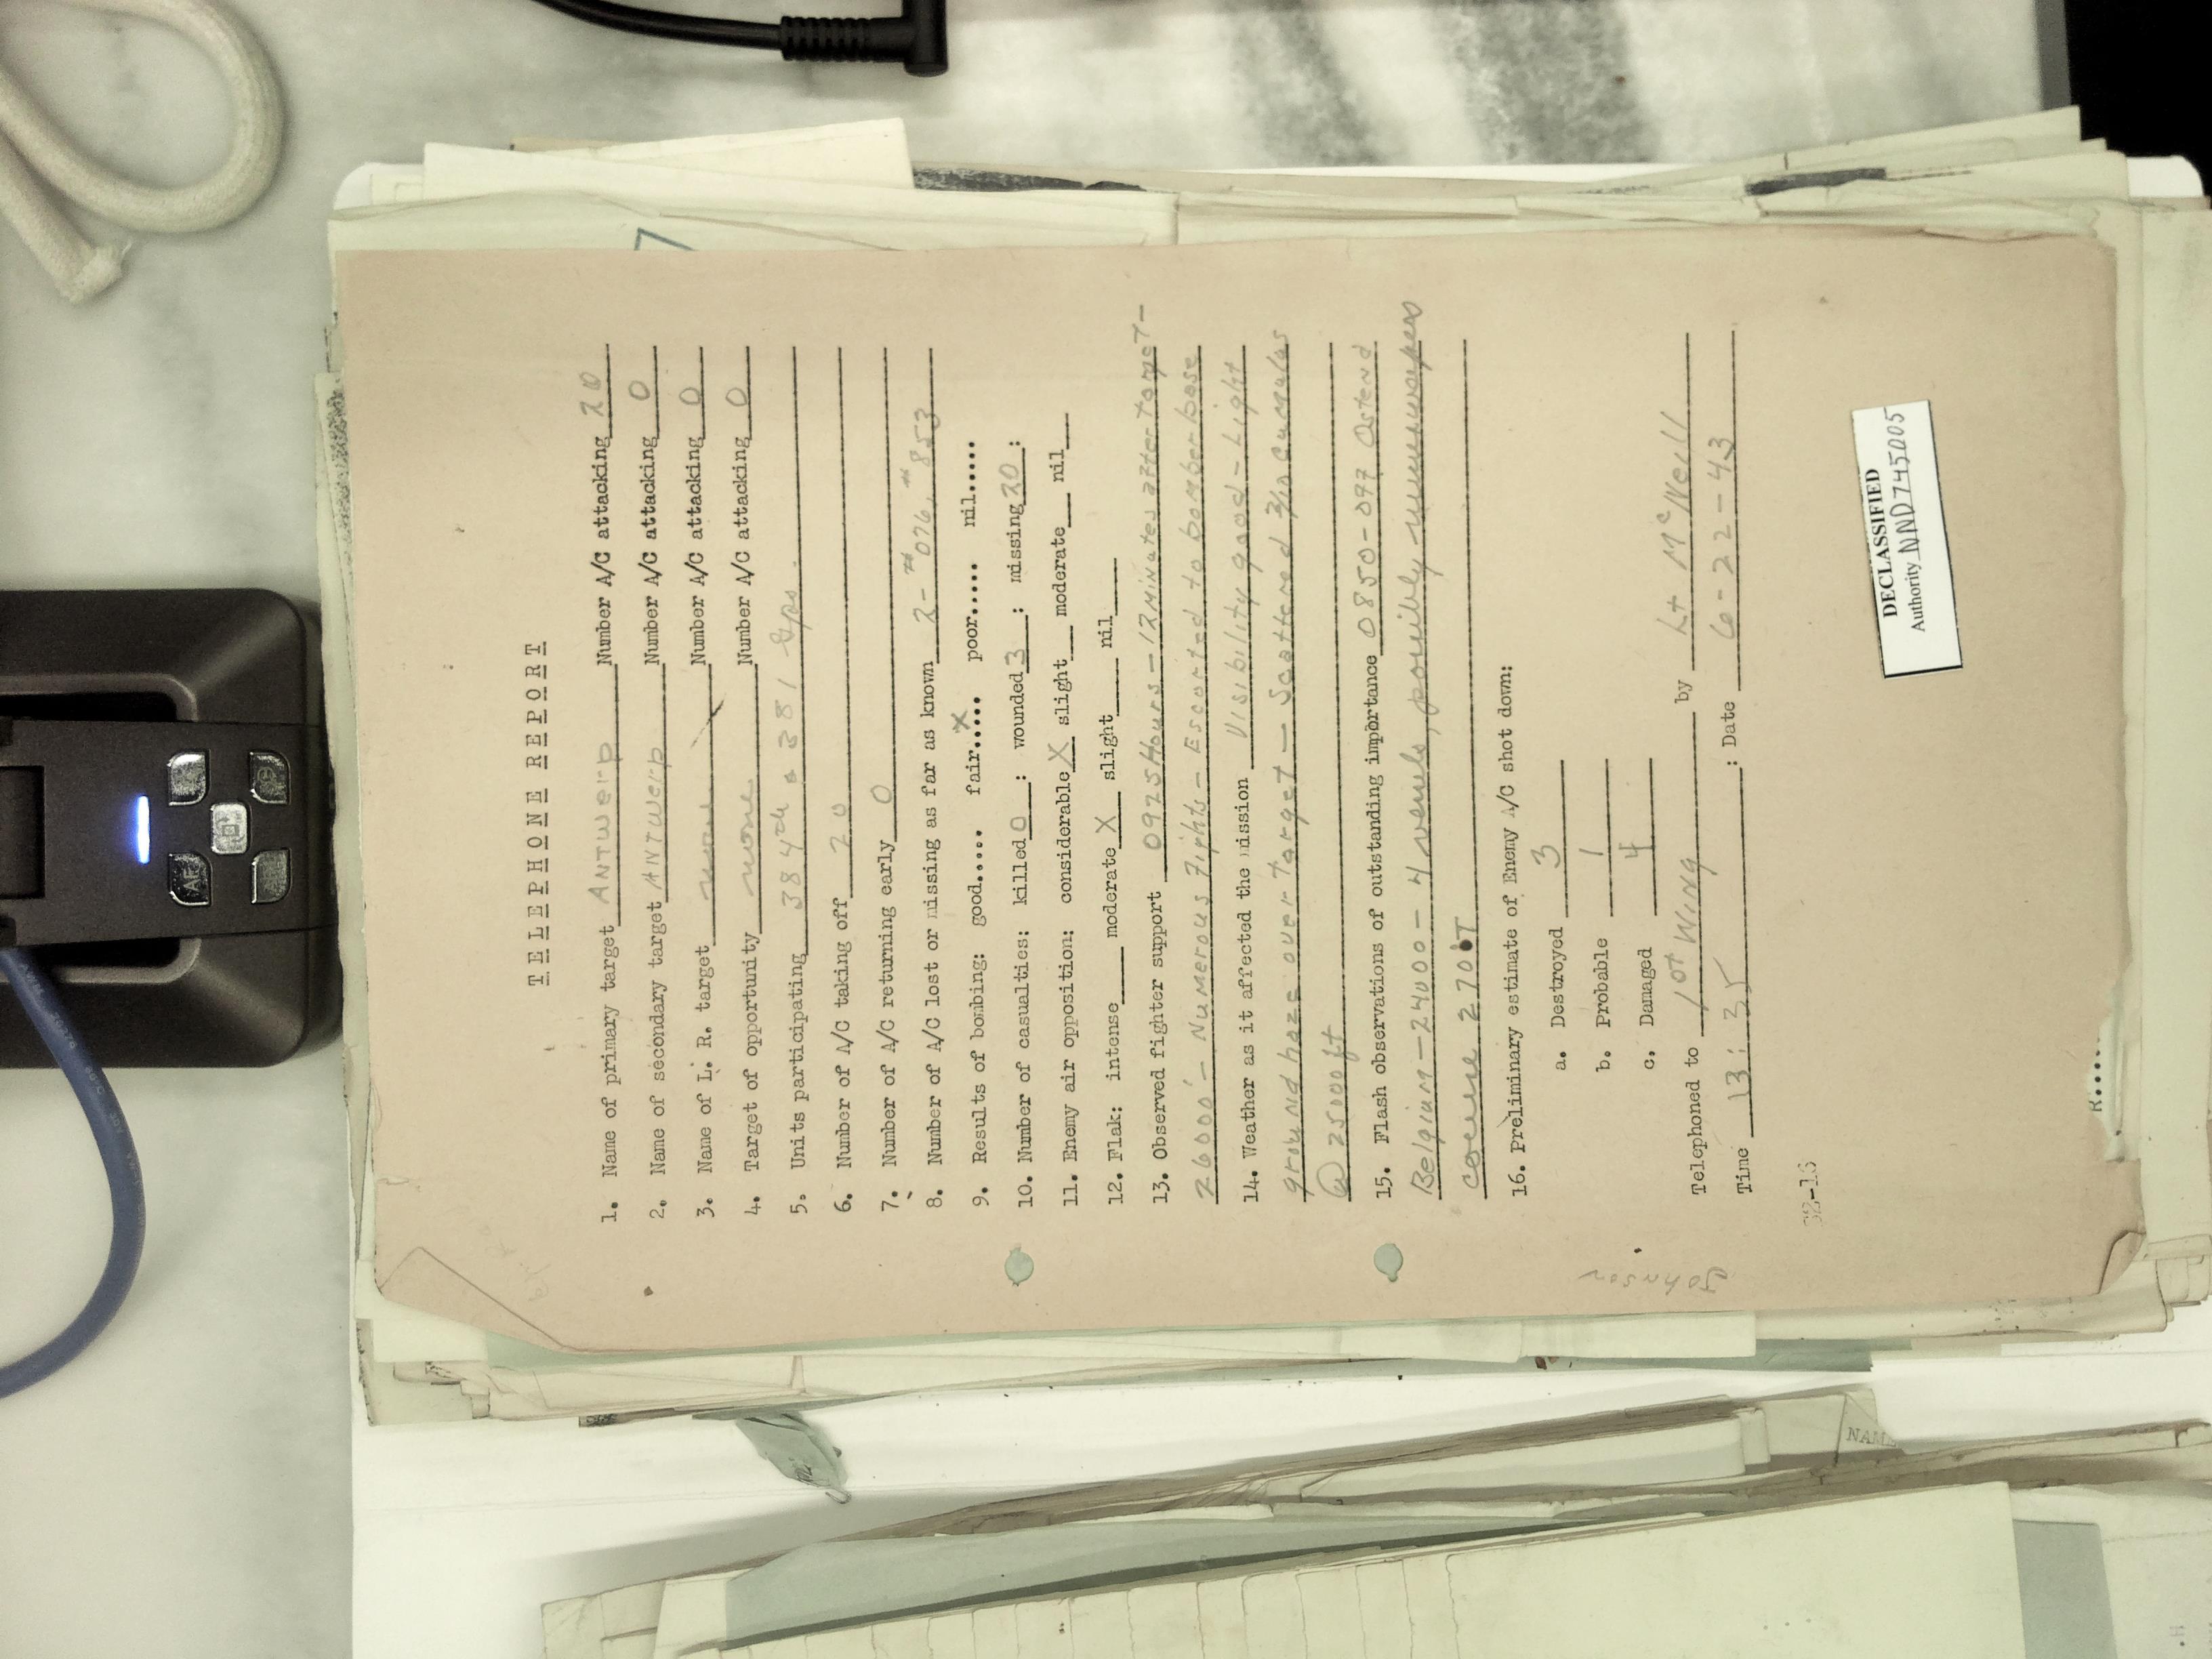 TELEPHONE REPORT
1. Name of primary target ANTWerp Number A/C attacking 20
2. Name of secondary target ANTWerp Number A/C attacking 0
3. Name of L. R. target none Number A/C attacking 0
4. Target of opportunity none Number A/C attacking 0
5. Units participating 384th 381 Gps.
6. Number of A/C taking off 20
7. Number of A/C returning early 0
8. Number of A/C lost or missing as far as known 2- #076, #853
9. Results of bombing: good..... fair..X.. poor..... nil.....
10. Number of casualties: killed 0 : wounded 3 : missing 20 :
11. Enemy air opposition: considerable X slight moderate nil
12. Flak: intense moderate X slight nil
13. Observed fighter support 0925 Hours - 12 Minutes after target -
26000' - Numerous Fights - Escorted to bomber base
14. Weather as it affected the mission Visibility good - Light
ground haze over Target - Scattered 3/10 Cumulus
@ 25000 ft
15. Flash observations of outstanding importance 0850-097 Ostend
Belgium - 24000 - 4 vessels, possibly minesweepers
course 270°T
16. Preliminary estimate of Enemy A/C shot down:
a. Destroyed 3
b. Probable 1
c. Damaged 4
Telephoned to 1st Wing by Lt McNeill
Time 13:35 : Date 6-22-43
32-13
Johnson
R.....
DECLASSIFIED
Authority NND745005
NAME
AF